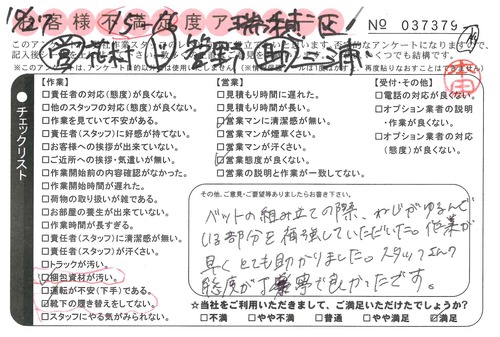 お客様不満足度アンケート
№ 037379
チェックリスト
【作業】
□責任者の対応(態度)が良くない。
□他のスタッフの対応(態度)が良くない。
□作業を見ていて不安がある。
□責任者(スタッフ)に好感が持てない。
□お客様への挨拶が出来ていない。
□ご近所への挨拶・気遣いが無い。
□作業開始前の内容確認がなかった。
□作業開始時間が遅れた。
□荷物の取り扱いが雑である。
□お部屋の養生が出来ていない。
□作業時間が長すぎる。
□責任者(スタッフ)に清潔感が無い。
□責任者(スタッフ)が汗くさい。
□トラックが汚い。
☑梱包資材が汚い。
□運転が不安(下手)である。
☑靴下の履き替えをしてない。
□スタッフにやる気がみられない。
【営業】
□見積もり時間に遅れた。
□見積もり時間が長い。
☑営業マンに清潔感が無い。
□営業マンが煙草くさい。
□営業マンが汗くさい。
☑営業態度が良くない。
□営業の説明と作業が一致してない。
【受付・その他】
□電話の対応が良くない。
□オプション業者の説明
・作業が良くない。
□オプション業者の対応
(態度)が良くない。
その他、ご意見・ご要望等ありましたらお書き下さい。
ベットの組み立ての際、ねじがゆるんで
いる部分を補強していただいた。作業が
早くとても助かりました。スタッフさんの
態度が丁寧で良かったです。
☆当社をご利用いただきまして、ご満足いただけたでしょうか?
□不満 □やや不満 □普通 □やや満足 ☑満足